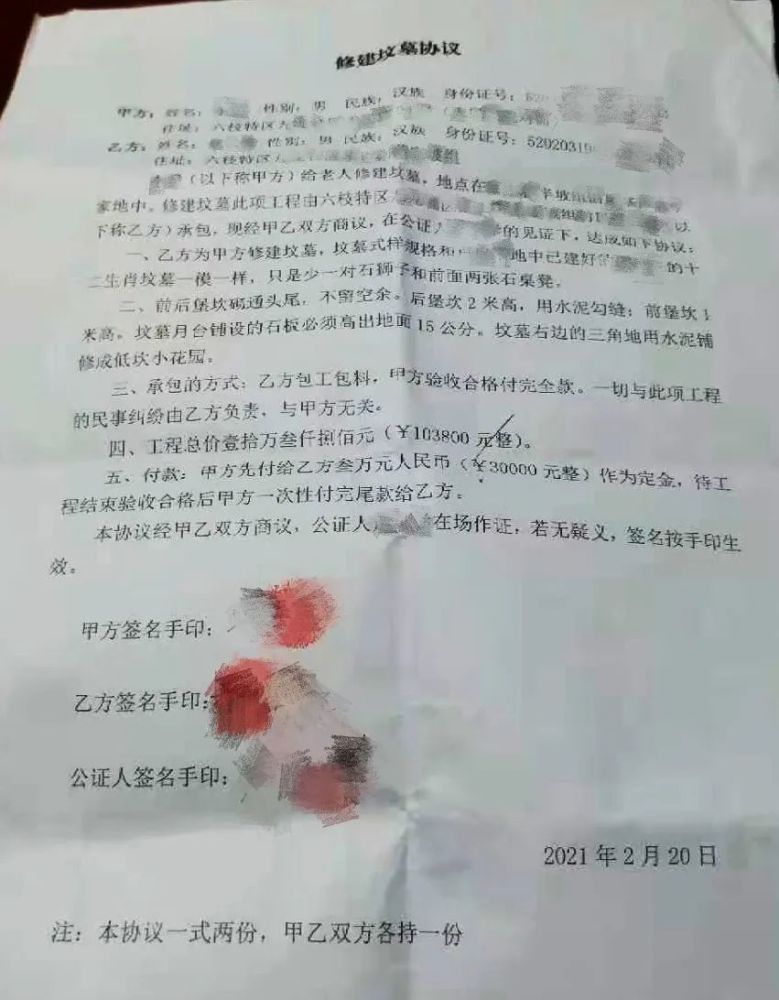 修建坟墓协议
甲方：姓名： 性别：男 民族：汉族 身份证号：520
住址：六枝特区
乙方：姓名： 性别：男 民族：汉族 身份证号：52020319
住址：六枝特区
（以下称甲方）给老人修建坟墓，地点在
家地中。修建坟墓此项工程由六枝特区 以
下称乙方）承包，现经甲乙双方商议，在公证人 的见证下，达成如下协议：
一、乙方为甲方修建坟墓，坟墓式样规格和 地中已建好 的十
二生肖坟墓一模一样，只是少一对石狮子和前面两张石桌凳。
二、前后堡坎砌通头尾，不留空余。后堡坎2米高，用水泥勾缝；前堡坎1
米高。坟墓月台铺设的石板必须高出地面15公分。坟墓右边的三角地用水泥铺
修成低坎小花园。
三、承包的方式：乙方包工包料，甲方验收合格付完全款。一切与此项工程
的民事纠纷由乙方负责，与甲方无关。
四、工程总价壹拾万叁仟捌佰元（￥103800元整）。
五、付款：甲方先付给乙方叁万元人民币（￥30000元整）作为定金，待工
程结束验收合格后甲方一次性付完尾款给乙方。
本协议经甲乙双方商议，公证人 在场作证，若无疑义，签名按手印生
效。
甲方签名手印：
乙方签名手印：
公证人签名手印：
2021年2月20日
注：本协议一式两份，甲乙双方各持一份